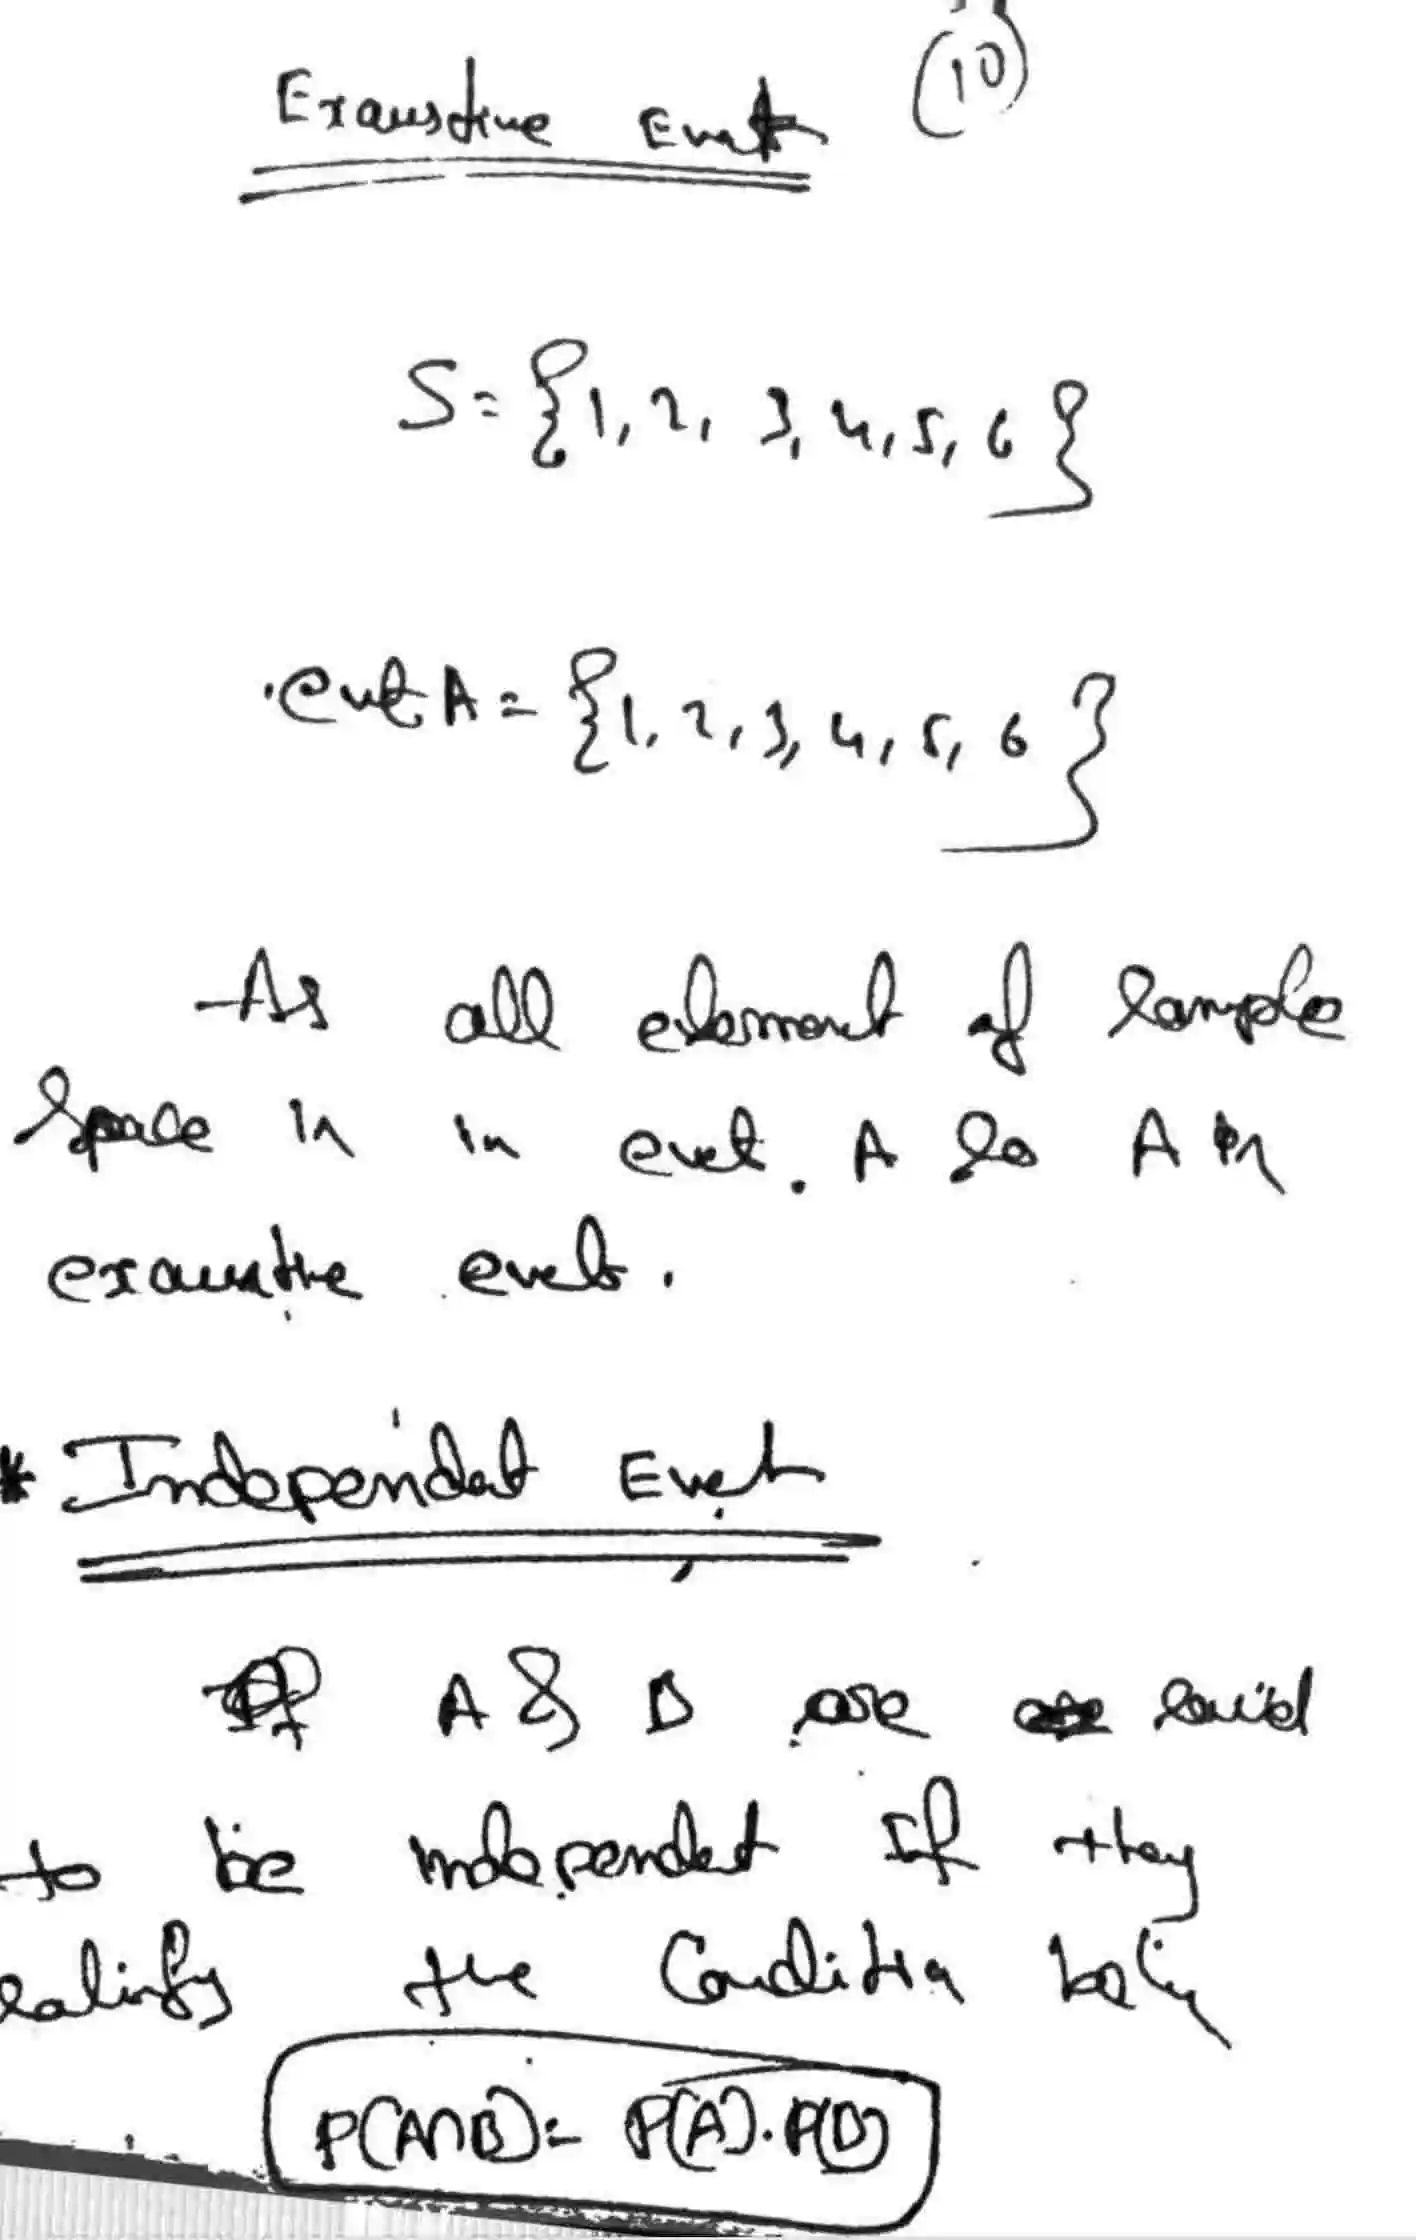 (10)
Exaustive Event
S={1, 2, 3, 4, 5, 6}
event A = {1, 2, 3, 4, 5, 6}
As all element of sample
space is in event A so A is
exaustive event.
* Independent Event
If A & B are said
to be independent if they
satisfy the Condition
P(A∩B) = P(A).P(B)